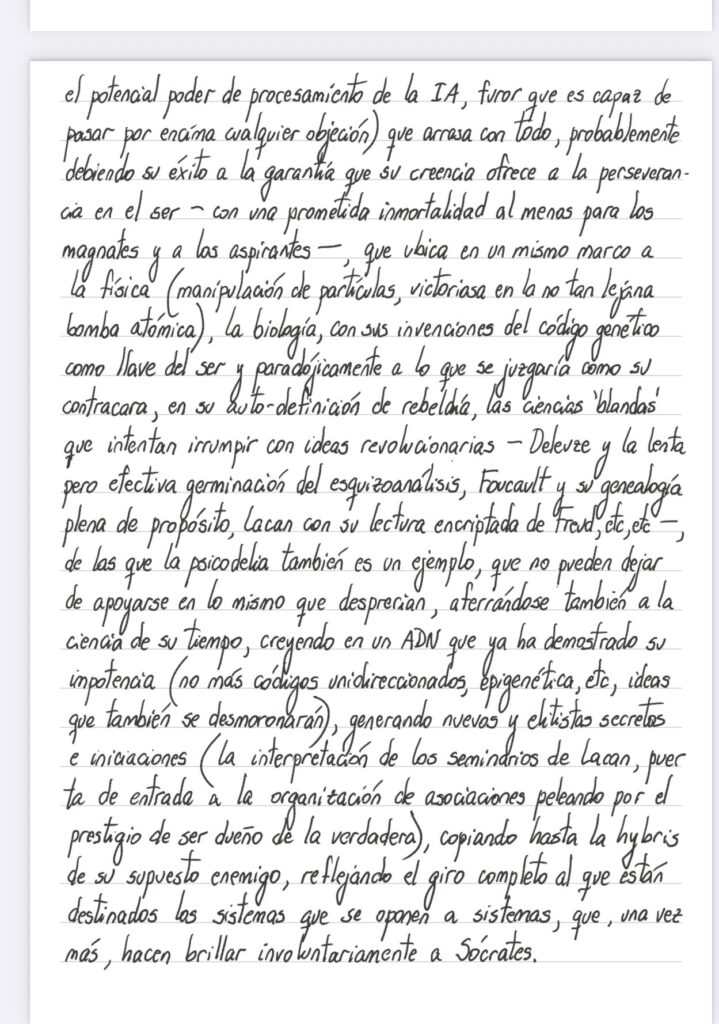 el potencial poder de procesamiento de la IA, furor que es capaz de
pasar por encima cualquier objeción) que arrasa con todo, probablemente
debiendo su éxito a la garantía que su creencia ofrece a la perseveran-
cia en el ser – con una prometida inmortalidad al menos para los
magnates y a los aspirantes –, que ubica en un mismo marco a
la física (manipulación de partículas, victoriosa en la no tan lejana
bomba atómica), la biología, con sus invenciones del código genético
como llave del ser y paradójicamente a lo que se juzgaría como su
contracara, en su auto-definición de rebeldía, las ciencias 'blandas'
que intentan irrumpir con ideas revolucionarias – Deleuze y la lenta
pero efectiva germinación del esquizoanálisis, Foucault y su genealogía
plena de propósito, Lacan con su lectura encriptada de Freud, etc, etc –,
de las que la psicodelia también es un ejemplo, que no pueden dejar
de apoyarse en lo mismo que desprecian, aferrándose también a la
ciencia de su tiempo, creyendo en un ADN que ya ha demostrado su
impotencia (no más códigos unidireccionados, epigenética, etc, ideas
que también se desmoronarán), generando nuevos y elitistas secretos
e iniciaciones (la interpretación de los seminarios de Lacan, puer
ta de entrada a la organización de asociaciones peleando por el
prestigio de ser dueño de la verdadera), copiando hasta la hybris
de su supuesto enemigo, reflejando el giro completo al que están
destinados los sistemas que se oponen a sistemas, que, una vez
más, hacen brillar involuntariamente a Sócrates.